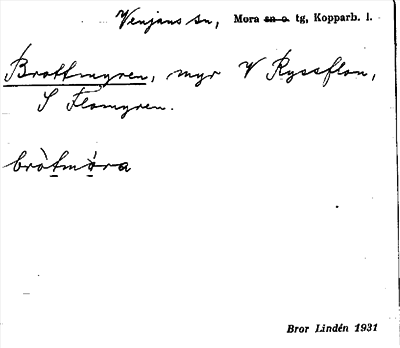 Venjans sn, Mora sn o. tg, Kopparb. l.
Brottmyren, myr V Ryssflon,
S Flomyren.
bròtmỳra
Bror Lindén 1931